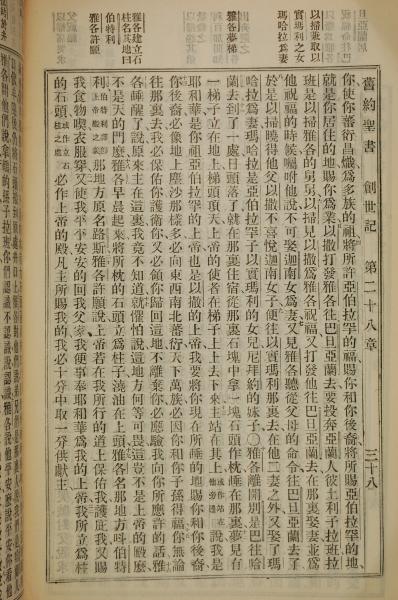 以掃並取以
實瑪利之女
瑪哈拉為妻
雅各夢梯
雅各建立石
柱名其地曰
伯特利
雅各許願
舊約聖書 創世記 第二十八章 三十八
你使你蕃衍昌熾為多族的祖將所許亞伯拉罕的福賜你和你後裔將所賜亞伯拉罕的地
就是你居住的地賜你為業以撒打發雅各往巴旦亞蘭去要投奔亞蘭人彼土利子拉班拉
班是以掃雅各的舅舅以掃見以撒為雅各祝福又打發他往巴旦亞蘭去在那裏娶妻並為
他祝福的時候囑咐他說不可娶迦南女為妻又見雅各聽從父母的命令往巴旦亞蘭去了
於是以掃曉得他父以撒不喜悅迦南女子便往以實瑪利那裏去在他二妻之外又娶了瑪
哈拉為妻瑪哈拉是亞伯拉罕子以實瑪利的女兒尼拜約的妹子〇雅各離開別是巴往哈
蘭去到了一處日頭落了就在那裏住宿從那裏石塊中拿一塊石頭作枕睡在那裏夢見有
一梯子立在地上梯頭頂天上帝的使者在梯子上上去下來主站在其上或作站在他旁邊說我是
耶和華是你祖亞伯拉罕的上帝也是以撒的上帝我要將你現在所睡的地賜你和你後裔
你後裔必像地上塵沙那樣多必向東西南北蕃衍天下萬族必因你和你子孫得福你無論
往那裏去我必保佑你護衛你又必領你歸回這地不離棄你必應驗我向你所應許的話雅
各睡醒了說原來主在這裏我竟不知道就懼怕說這地方何等可畏這豈不是上帝的殿麼
不是天的門麼雅各早晨起來將所枕的石頭立為柱子澆油在上頭雅各名那地方呌伯特
利伯特利譯卽上帝殿之義那地方原名路斯雅各許願說上帝若在我所行的道上保佑我護庇我又賜
我食物喫衣服穿又使我平平安安的回我父家我便事奉耶和華為我的上帝我所立為柱
的石頭或作立石柱之處必作上帝的殿凡主所賜我的我必十分中取一分供獻主